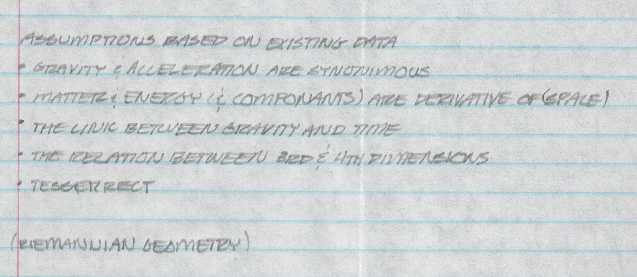 ASSUMPTIONS BASED ON EXISTING DATA
• GRAVITY & ACCELERATION ARE SYNONIMOUS
• MATTER & ENERGY (& COMPONANTS) ARE DERIVATIVE OF (SPACE)
• THE LINK BETWEEN GRAVITY AND TIME
• THE RELATION BETWEEN 3RD & 4TH DIMENSIONS
• TESSERRECT
(RIEMANNIAN GEOMETRY)